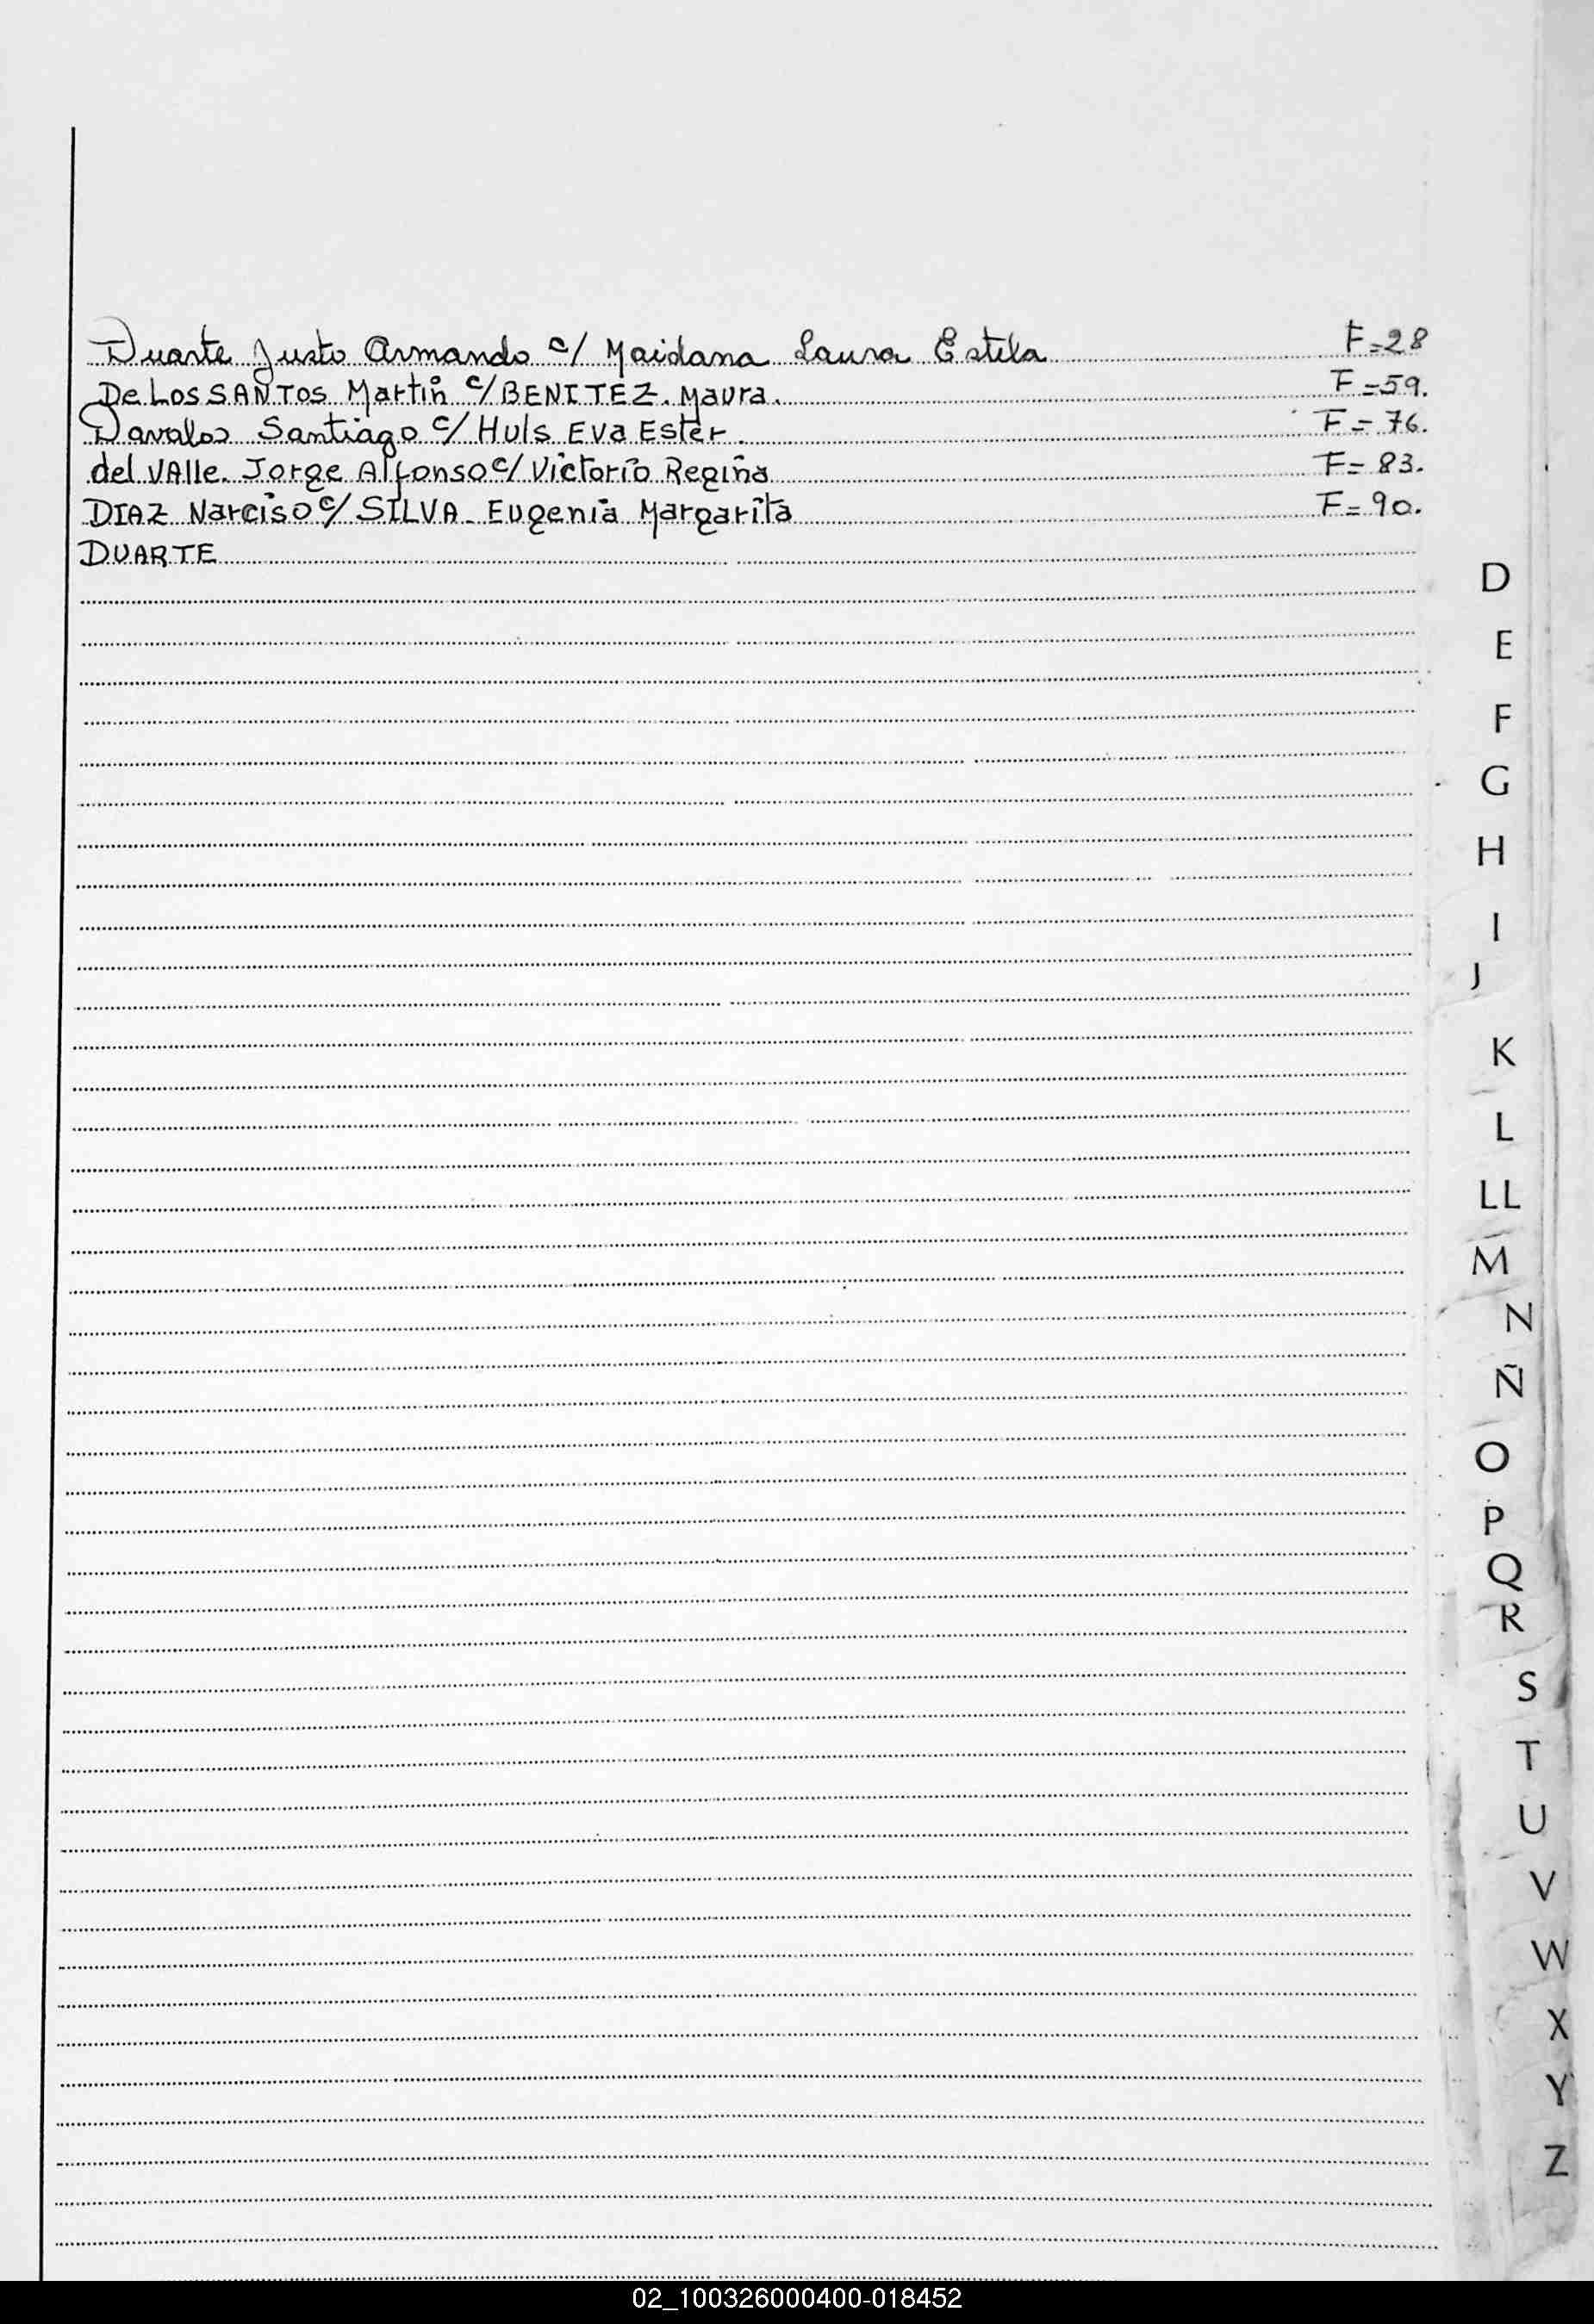 Duarte Justo Armando c/ Maidana Laura Estela F=28
De LOS SANTOS Martin c/ BENITEZ. Maura. F=59.
Davalos Santiago c/ Huls Eva Ester. F=76.
del VAlle. Jorge Alfonso c/ Victorio Regina F=83.
DIAZ Narciso c/ SILVA. Eugenia Margarita F=90.
DUARTE
D
E
F
G
H
I
J
K
L
LL
M
N
Ñ
O
P
Q
R
S
T
U
V
W
X
Y
Z
02_100326000400-018452